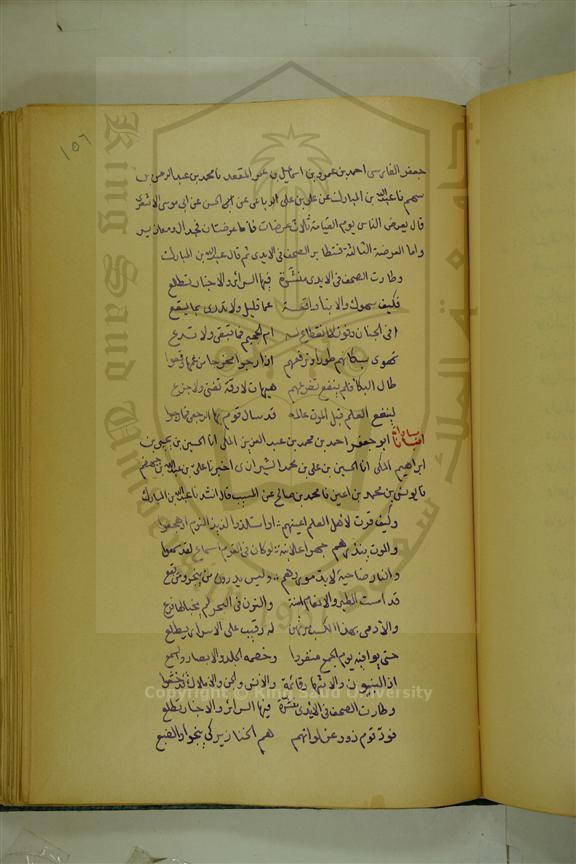 ١٥٦
جعفر الفارسي احمد بن عمرو بن اسماعيل بن عمر المقعد نا محمد بن عبد الرحمن بن
سهم نا عبد الله بن المبارك عن علي بن علي الرفاعي عن الحسن عن ابي موسى الاشعري
قال يعرض الناس يوم القيامة ثلاث عرضات فاما عرضتان فجدال ومعاذير
واما العرضة الثالثة فتطاير الصحف في الايدي ثم قال عبد الله بن المبارك
وطارت الصحف في الايدي منشرة فيها السرائر والاخبار تطلع
فكيف سهوك والانباء واقعة عما قليل ولا تدري بما يقع
افي الجنان وفوز لا انقطاع له ام الجحيم فما تبقي ولا تدع
تهوي بسكانها طورا وترفعهم اذا رجوا مخرجا من غمها قمعوا
طال البكا فلم ينفع تضرعهم هيهات لا رقة تغني ولا جزع
لينفع العلم قبل الموت عالمه قد سال قوم بها الرجعى فما رجعوا
ابو جعفر احمد بن محمد بن عبد العزيز المكي انا الحسين بن يحيى بن
ابراهيم المكي انا الحسين بن علي بن محمد الشيرازي اخبرنا علي بن عبد الله بن جهضم
نا يونس بن محمد بن اعين نا محمد بن صالح عن المسيب قال انشدنا عبد الله بن المبارك
وكيف قرت لاهل العلم اعينهم او استلذوا لذيذ النوم او هجعوا
والموت ينذرهم جهرا علانية لو كان في القوم اسماع لقد سمعوا
والنار ضاحية لا بد موردهم وليس يدرون من ينجو ومن يقع
قد امست الطير والانعام امنة والنون في البحر لم يخبا لها فزع
والادمي بهذا الكسب مرتهن له رقيب على الاسرار يطلع
حتى يوافيه يوم الجمع منفردا وخصمه الجلد والابصار والسمع
اذ النبيون والاشهاد قائمة والانس والجن والاملاك قد خشعوا
وطارت الصحف في الايدي منشرة فيها السرائر والاخبار تطلع
فود قوم ذوو عز لو انهم هم الخنازير كي ينجوا والضبع
Copyright © King Saud University
King Saud University
جامعة الملك سعود
1957